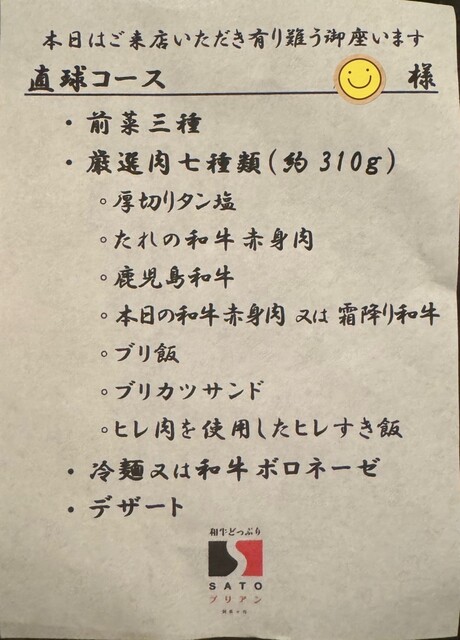 本日はご来店いただき有り難う御座います
直球コース 様
・前菜三種
・厳選肉七種類(約310g)
○厚切りタン塩
○たれの和牛赤身肉
○鹿児島和牛
○本日の和牛赤身肉又は霜降り和牛
○ブリ飯
○ブリカツサンド
○ヒレ肉を使用したヒレすき飯
・冷麺又は和牛ボロネーゼ
・デザート
和牛どっぷり
SATO
ブリアン